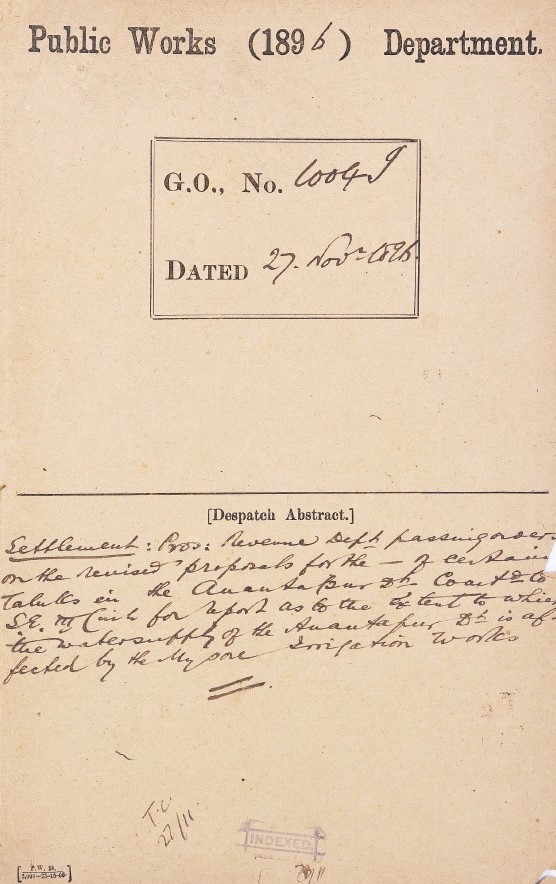 Public Works (1896) Department.
G.O., No. 1004 I
DATED 27. Novr 1896.
[Despatch Abstract.]
Settlement: Pros: Revenue Dept passing orders
on the revised proposals for the — of certain
Taluks in the Anantapur Dt. to
S.E. Circle for report as to the extent to which
the water supply of the Anantapur Dt. is af-
fected by the Mysore Irrigation Works
T.C.
27/11
INDEXED.
P.W. 28.